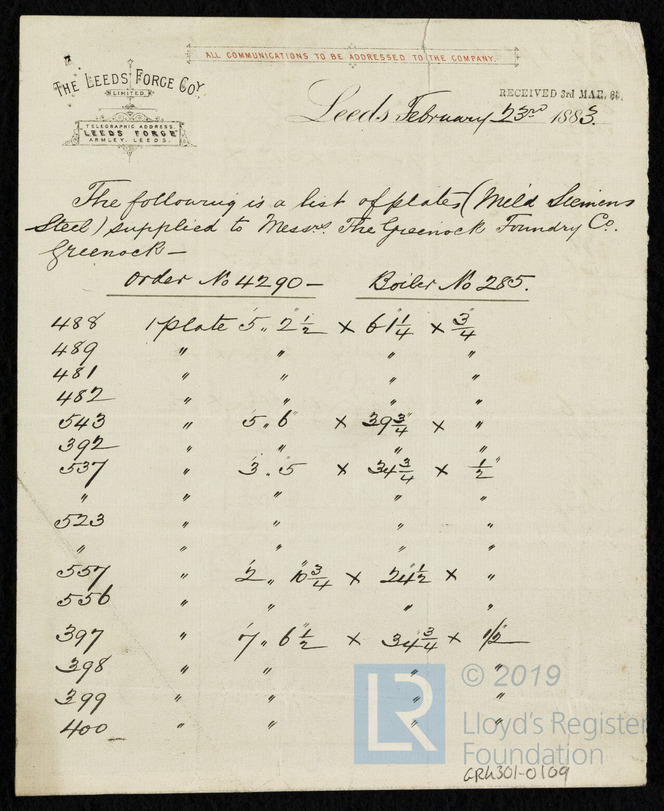 ALL COMMUNICATIONS TO BE ADDRESSED TO THE COMPANY.
THE LEEDS FORGE COY
LIMITED.
TELEGRAPHIC ADDRESS,
LEEDS FORGE
ARMLEY, LEEDS.
RECEIVED 3rd MAR. 83.
Leeds February 23rd 1883.
The following is a list of plates (Mild Siemens
Steel) supplied to Messrs. The Greenock Foundry Co.
Greenock—
Order No 4290— Boiler No 285.
488 1 plate 5' 2 1/2" × 61 1/4" × 3/4"
489 " " " "
481 " " " "
482 " " " "
543 " 5' 6" × 39 3/4" × "
392 " " " "
537 " 3' 5" × 34 3/4" × 1/2"
" " " " "
523 " " " "
" " " " "
557 " 2' 10 3/4" × 24 1/2" × "
556 " " " "
397 " 7' 6 1/2" × 34 3/4" × 1/2"
398 " " " "
399 " " " "
400 " " " "
LR
© 2019
Lloyd's Register
Foundation
GRK301-0109